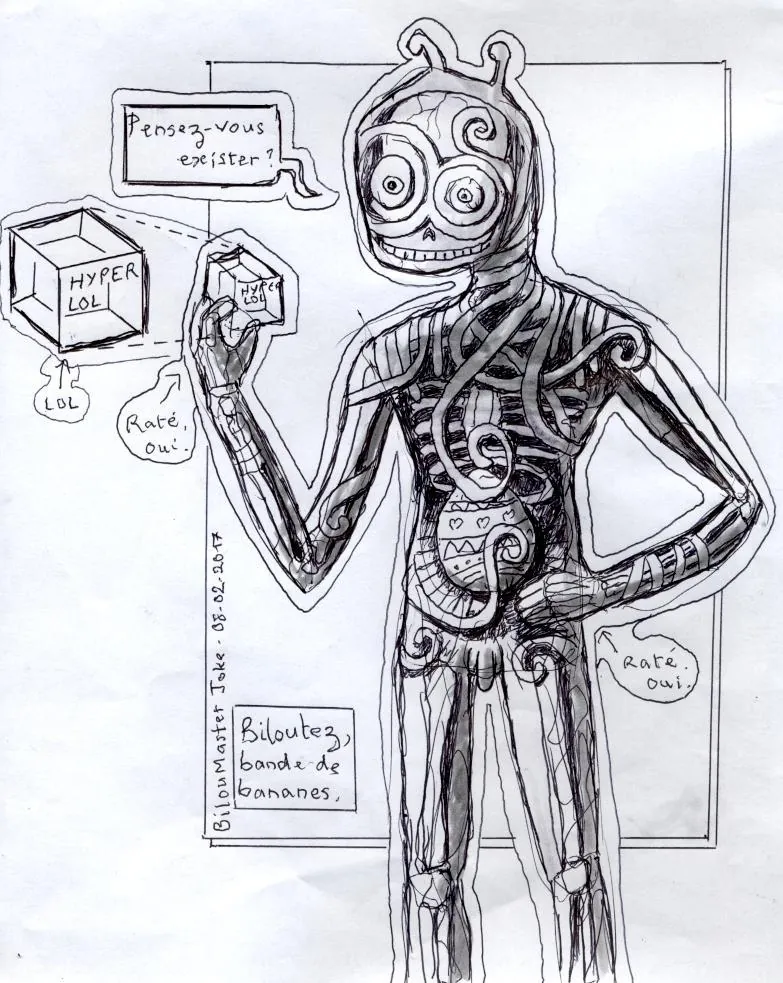 Pensez-vous
exister ?
HYPER
LOL
HYPER
LOL
LOL
Raté,
oui.
BilouMaster Joke - 08-02-2017
Raté.
oui.
Biloutez,
bande de
bananes.